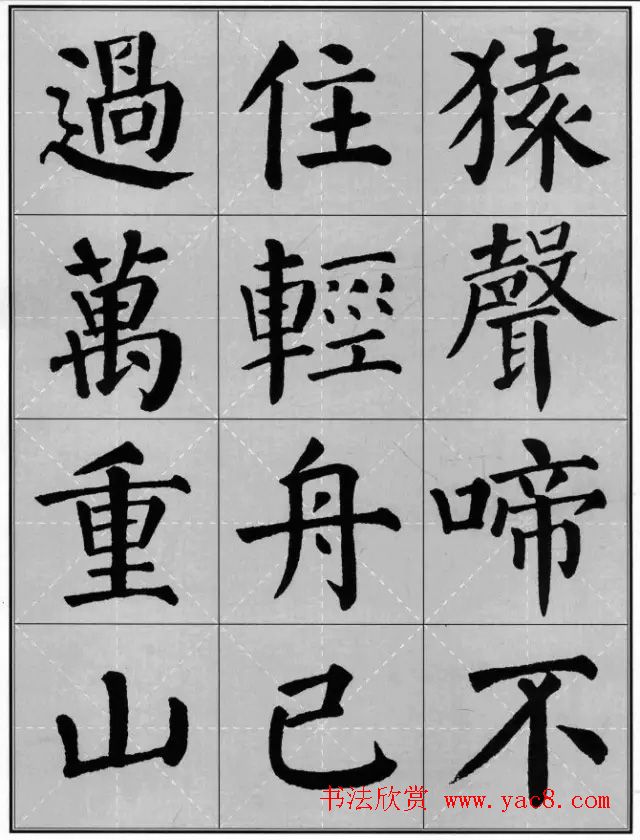 猿聲啼不
住輕舟已
過萬重山
书法欣赏 www.yac8.com